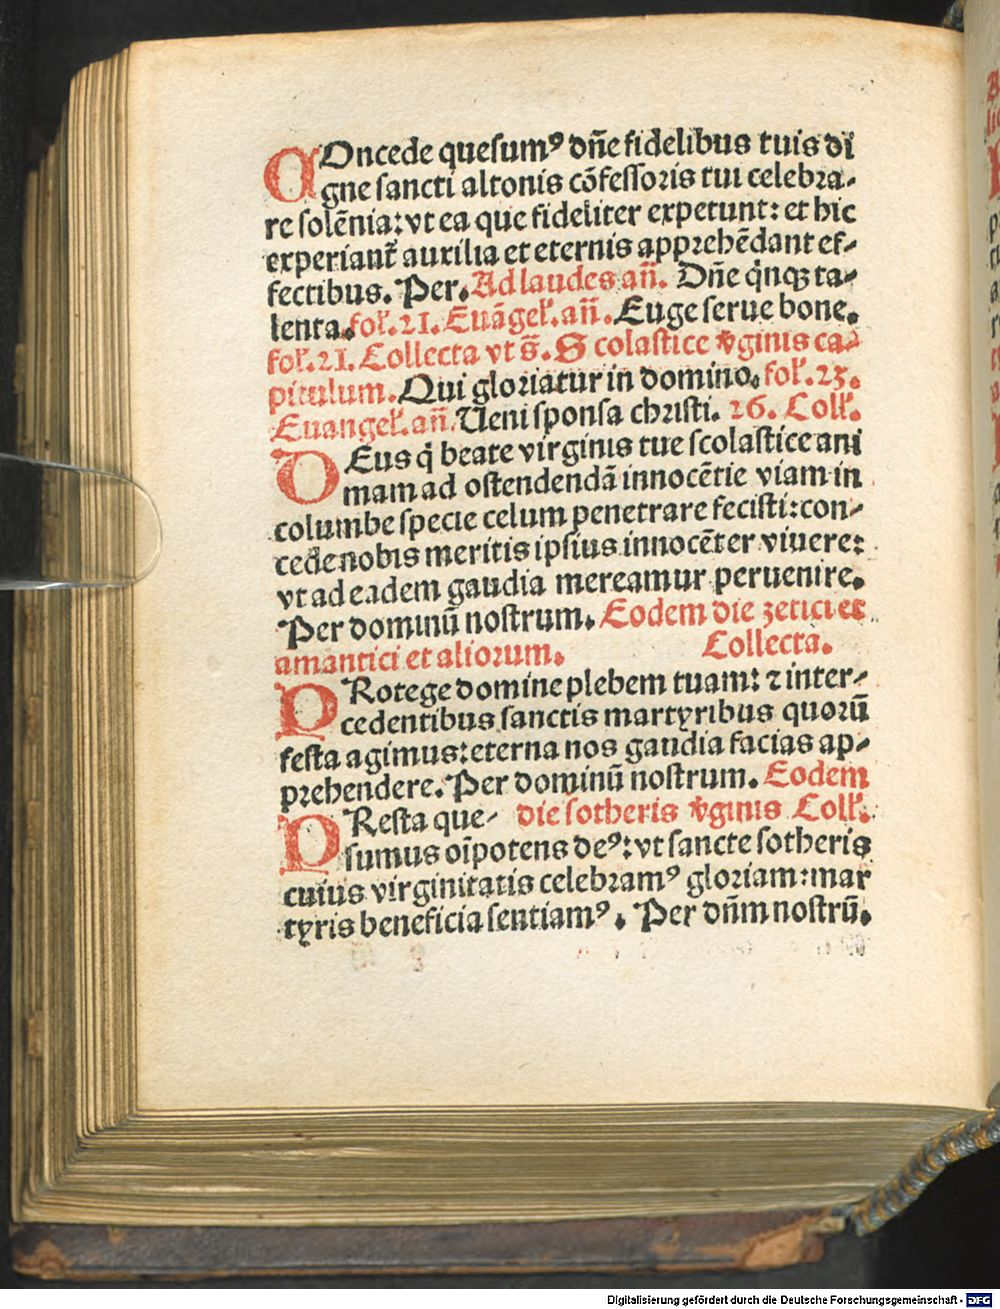 COncede quesumꝰ dñe fidelibus tuis di
gne sancti altonis cõfessoris tui celebra⸗
re solẽnia: vt ea que fideliter expetunt: et hic
experiant̃ auxilia et eternis apprehẽdant ef⸗
fectibus. Per. Ad laudes añ. Dñe q̃nqꝫ ta⸗
lenta. fol̃. 21. Euãgel̃. añ. Euge serue bone.
fol̃. 21. Collecta vt s̃. Scolastice v̾ginis ca⸗
pitulum. Qui gloriatur in domino. fol̃. 25.
Euangel̃. añ. Ueni sponsa christi. 26. Coll̃.
DEus q̃ beate virginis tue scolastice ani
mam ad ostendendã innocẽtie viam in
columbe specie celum penetrare fecisti: con⸗
cede nobis meritis ipsius innocẽter viuere:
vt ad eadem gaudia mereamur peruenire.
Per dominũ nostrum. Eodem die zetici et
amantici et aliorum. Collecta.
PRotege domine plebem tuam: ⁊ inter⸗
cedentibus sanctis martyribus quorũ
festa agimus: eterna nos gaudia facias ap⸗
prehendere. Per dominũ nostrum. Eodem
PResta que⸗ die sotheris v̾ginis Coll̃.
sumus oĩpotens deꝰ: vt sancte sotheris
cuius virginitatis celebramꝰ gloriam: mar
tyris beneficia sentiamꝰ. Per dñm nostrũ.
Digitalisierung gefördert durch die Deutsche Forschungsgemeinschaft - DFG